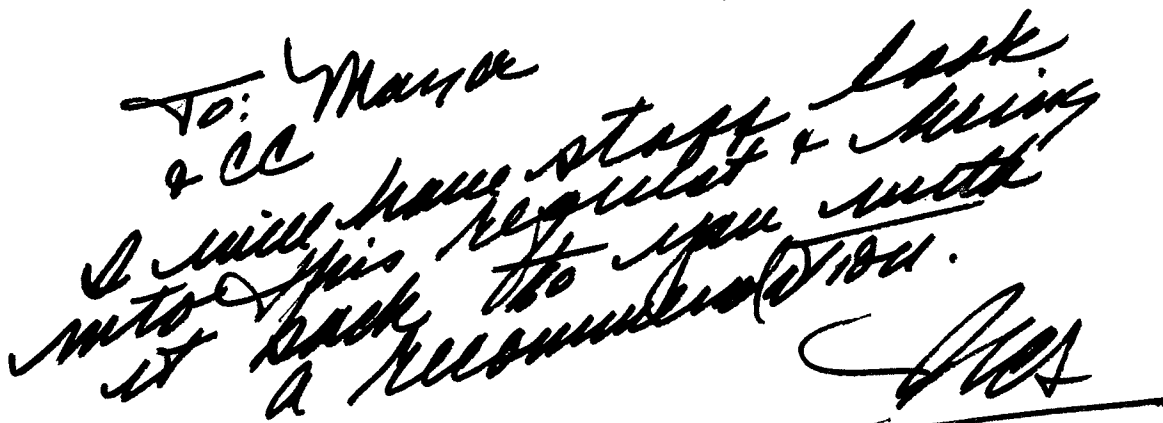 To: Mayor
& CC
I will have staff look
into this request & bring
it back to you with
a recommendation.